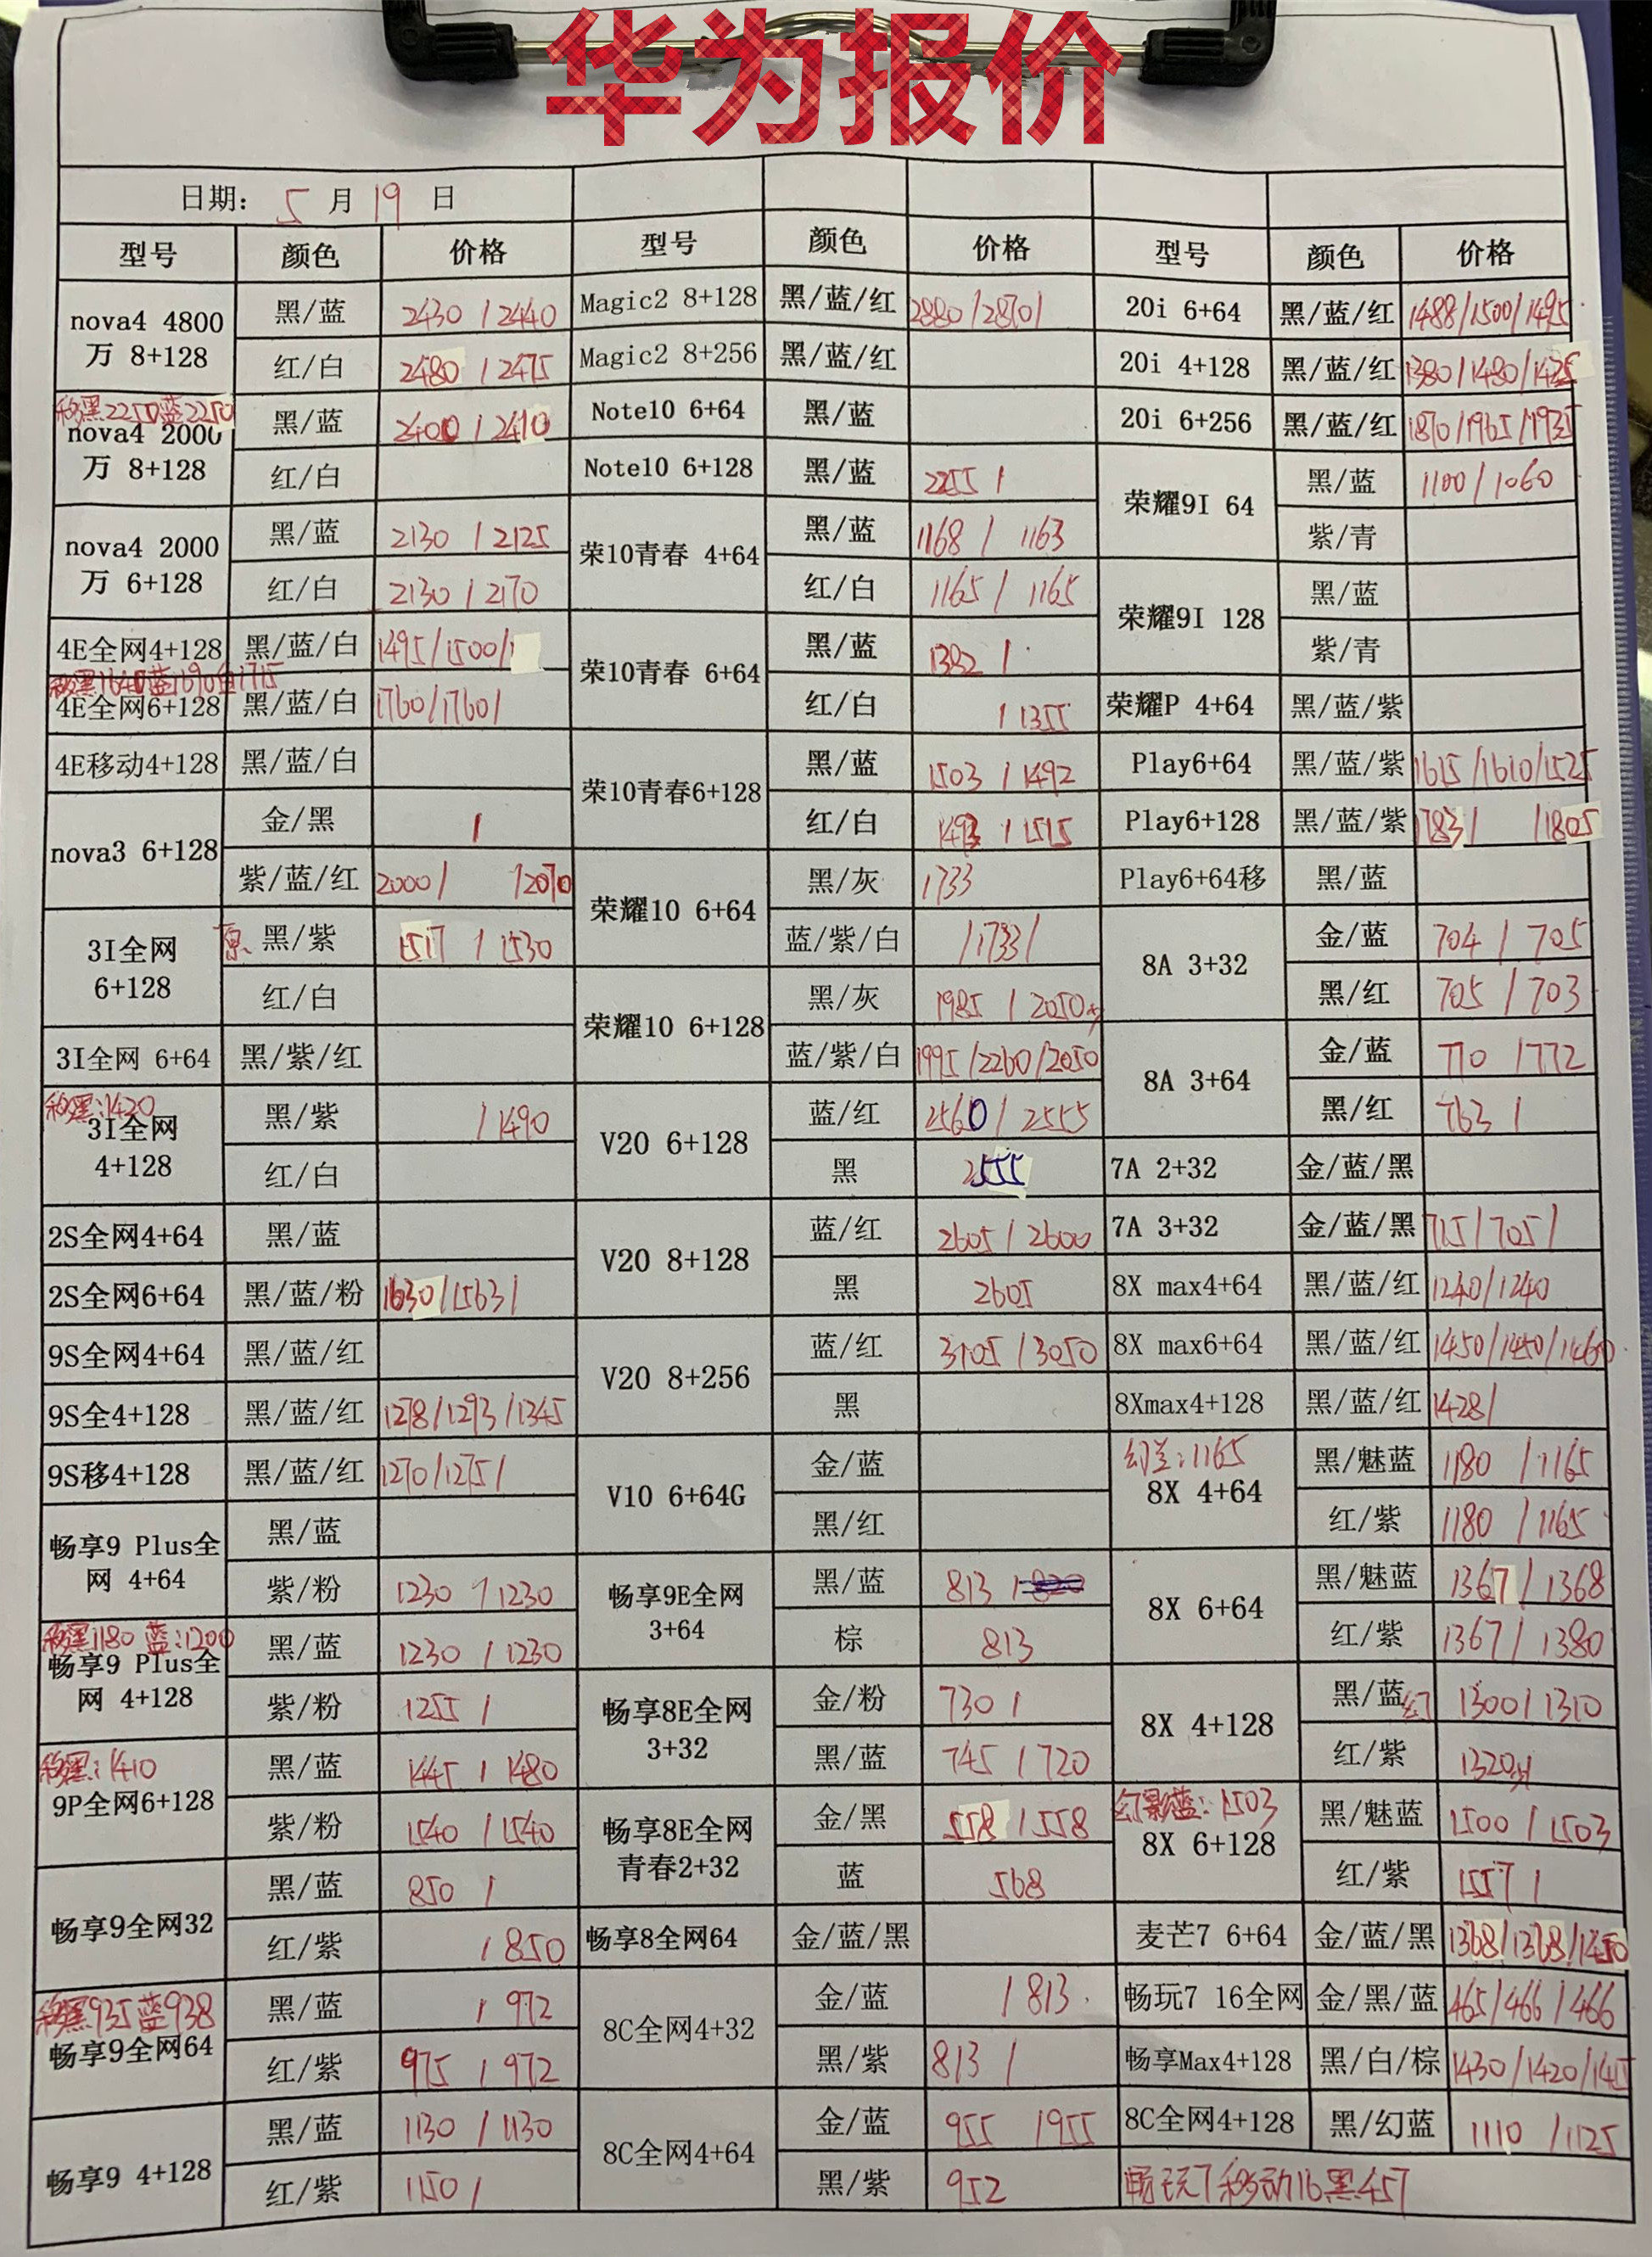 华为报价
日期： 5 月 19 日
型号 颜色 价格 型号 颜色 价格 型号 颜色 价格
nova4 4800万 8+128 黑/蓝 2430 / 2440
红/白 2480 / 2475
移黑2250蓝2250
nova4 2000万 8+128 黑/蓝 2400 / 2410
红/白
nova4 2000万 6+128 黑/蓝 2130 / 2125
红/白 2130 / 2170
4E全网4+128 黑/蓝/白 1495/1500/
移黑1640蓝1690白1715
4E全网6+128 黑/蓝/白 1760/1760/
4E移动4+128 黑/蓝/白
nova3 6+128 金/黑 /
紫/蓝/红 2000/ /2070
3I全网 6+128 京 黑/紫 1517 / 1530
红/白
3I全网 6+64 黑/紫/红
移黑:1420
3I全网 4+128 黑/紫 / 1490
红/白
2S全网4+64 黑/蓝
2S全网6+64 黑/蓝/粉 1630/1563/
9S全网4+64 黑/蓝/红
9S全4+128 黑/蓝/红 1278/1293/1345
9S移4+128 黑/蓝/红 1270/1275/
畅享9 Plus全网 4+64 黑/蓝
紫/粉 1230 / 1230
移黑1180 蓝:1200
畅享9 Plus全网 4+128 黑/蓝 1230 / 1230
紫/粉 1255 /
移黑:1410
9P全网6+128 黑/蓝 1445 / 1480
紫/粉 1540 / 1540
畅享9全网32 黑/蓝 850 /
红/紫 / 850
移黑935蓝938
畅享9全网64 黑/蓝 / 972
红/紫 975 / 972
畅享9 4+128 黑/蓝 1130 / 1130
红/紫 1150 /
Magic2 8+128 黑/蓝/红 2880/2870/
Magic2 8+256 黑/蓝/红
Note10 6+64 黑/蓝
Note10 6+128 黑/蓝 2255 /
荣10青春 4+64 黑/蓝 1168 / 1163
红/白 1165 / 1165
荣10青春 6+64 黑/蓝 1392 /
红/白 / 1355
荣10青春6+128 黑/蓝 1503 / 1492
红/白 1493 / 1515
荣耀10 6+64 黑/灰 1733
蓝/紫/白 /1733/
荣耀10 6+128 黑/灰 1985 / 2050
蓝/紫/白 1995/2260/2050
V20 6+128 蓝/红 2560 / 2555
黑 2555
V20 8+128 蓝/红 2605 / 2600
黑 2605
V20 8+256 蓝/红 3105 / 3050
黑
V10 6+64G 金/蓝
黑/红
畅享9E全网 3+64 黑/蓝 813 /
棕 813
畅享8E全网 3+32 金/粉 730 /
黑/蓝 745 / 720
畅享8E全网青春2+32 金/黑 558 / 558
蓝 568
畅享8全网64 金/蓝/黑
8C全网4+32 金/蓝 / 813
黑/紫 813 /
8C全网4+64 金/蓝 955 / 955
黑/紫 952
20i 6+64 黑/蓝/红 1488/1500/1495
20i 4+128 黑/蓝/红 1380/1480/1425
20i 6+256 黑/蓝/红 1870/1965/1935
荣耀9I 64 黑/蓝 1100 / 1060
紫/青
荣耀9I 128 黑/蓝
紫/青
荣耀P 4+64 黑/蓝/紫
Play6+64 黑/蓝/紫 1615/1610/1525
Play6+128 黑/蓝/紫 1783/ /1805
Play6+64移 黑/蓝
8A 3+32 金/蓝 704 / 705
黑/红 705 / 703
8A 3+64 金/蓝 770 / 772
黑/红 763 /
7A 2+32 金/蓝/黑
7A 3+32 金/蓝/黑 715/705/
8X max4+64 黑/蓝/红 1240/1240
8X max6+64 黑/蓝/红 1450/1450/1460
8Xmax4+128 黑/蓝/红 1428/
幻兰:1165
8X 4+64 黑/魅蓝 1180 / 1165
红/紫 1180 / 1165
8X 6+64 黑/魅蓝 1367 / 1368
红/紫 1367 / 1380
8X 4+128 黑/蓝幻 1300 / 1310
红/紫 1320
幻影蓝:1503
8X 6+128 黑/魅蓝 1500 / 1503
红/紫 1557 /
麦芒7 6+64 金/蓝/黑 1368/1368/1450
畅玩7 16全网 金/黑/蓝 465/466/466
畅享Max4+128 黑/白/棕 1430/1420/
8C全网4+128 黑/幻蓝 1110 / 1125
畅玩7移动16黑457